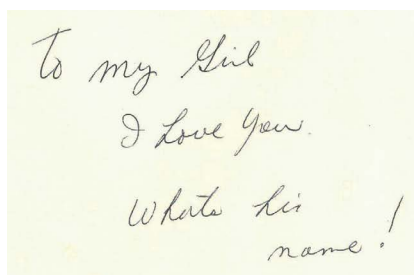 To my Girl
I Love You.
Whats his
name!